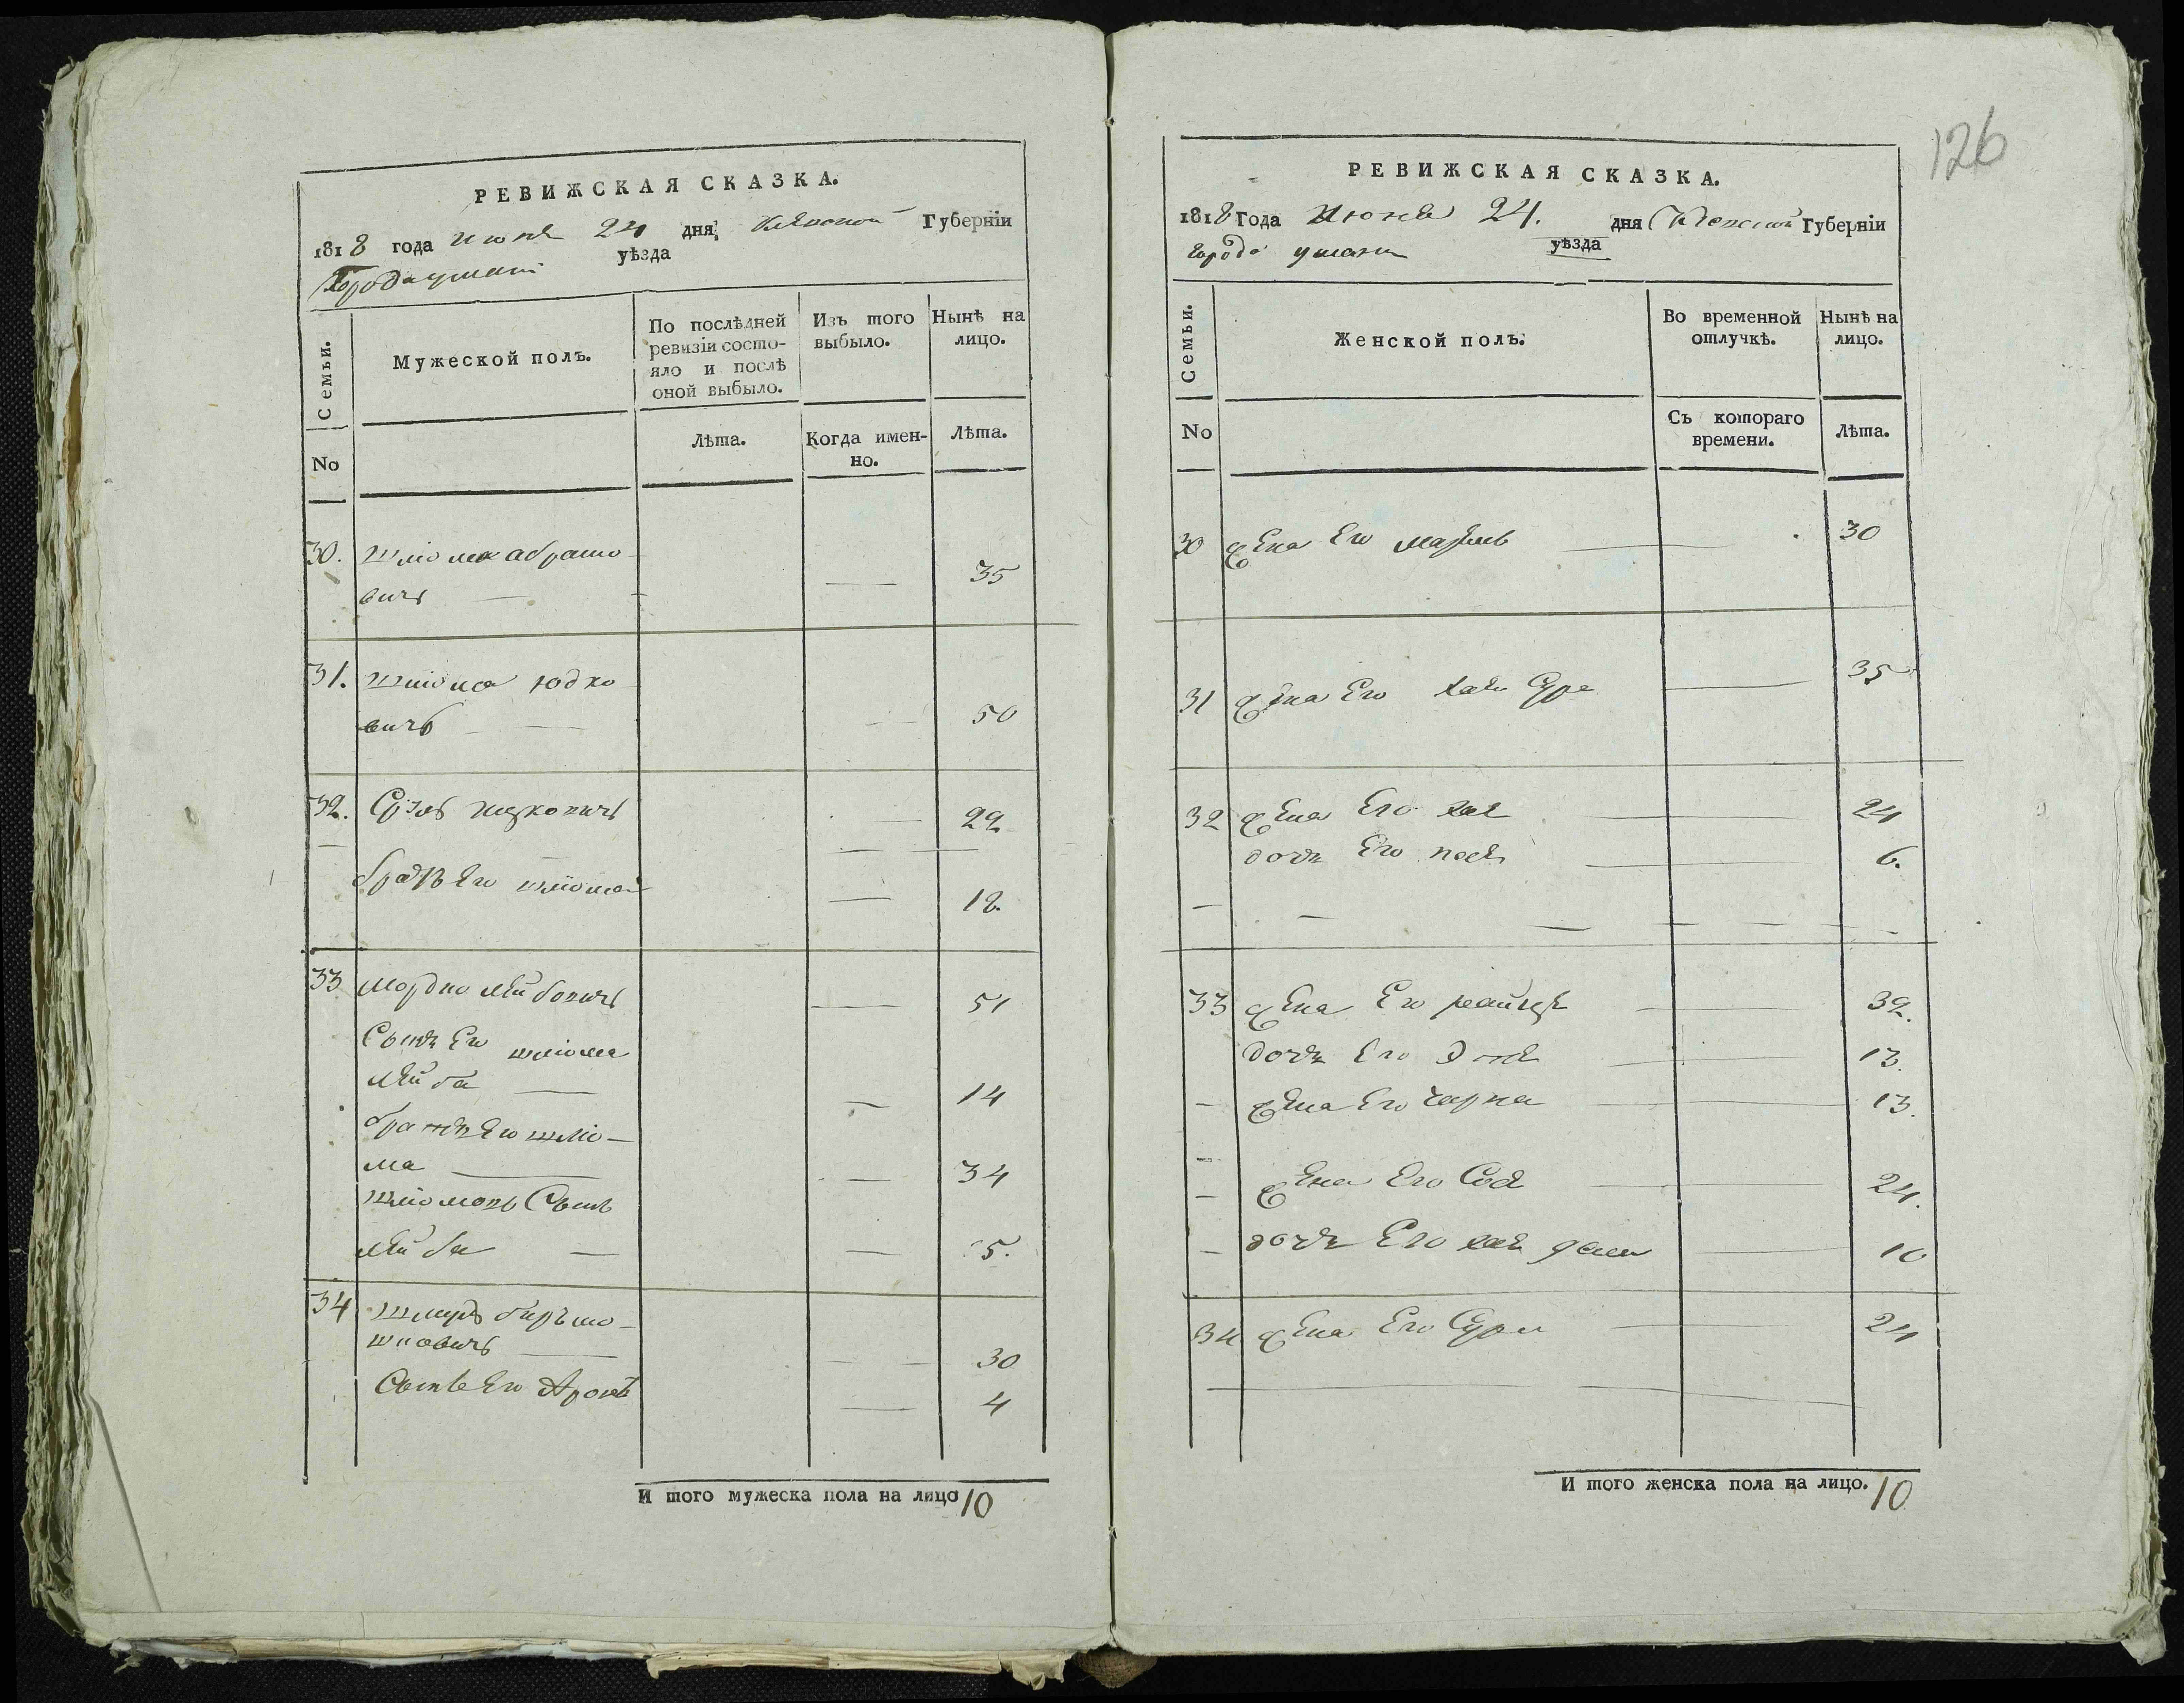 РЕВИЖСКАЯ СКАЗКА.
1818 года июня 24 дня Киевской Губерніи
Города умани уѣзда
Семьи.
Мужеской полъ.
По послѣдней ревизіи состо-
яло и послѣ
оной выбыло.
Изъ того
выбыло.
Нынѣ на
лицо.
No
Лѣта.
Когда имен-
но.
Лѣта.
30. абрамо
вичъ 35
31. шліома юдко
вичъ 50
32. Сруль ицковичъ 22
братъ Его шліома 18
33 мордко лейбовичъ 51
Сынъ Его шліома
лейба 14
братъ Его шліо-
ма 34
шліомовъ Сынъ
лейба 5.
34 шмуль
шковичъ 30
Сынъ Его Аронъ 4
И того мужеска пола на лицо 10
126
РЕВИЖСКАЯ СКАЗКА.
1818 Года Июня 24. дня Киевской Губерніи
города умани уѣзда
Семьи.
Женской полъ.
Во временной
отлучкѣ.
Нынѣ на
лицо.
No
Съ котораго
времени.
Лѣта.
30 жена Его 30
31 жена Его хая Сура 35
32 жена Его хая 24
дочь Его 6.
33 жена Его 32.
дочь Его 13.
жена Его Чарна 13.
жена Его Сося 24.
дочь Его хая 10
34 жена Его Сура 24
И того женска пола на лицо. 10